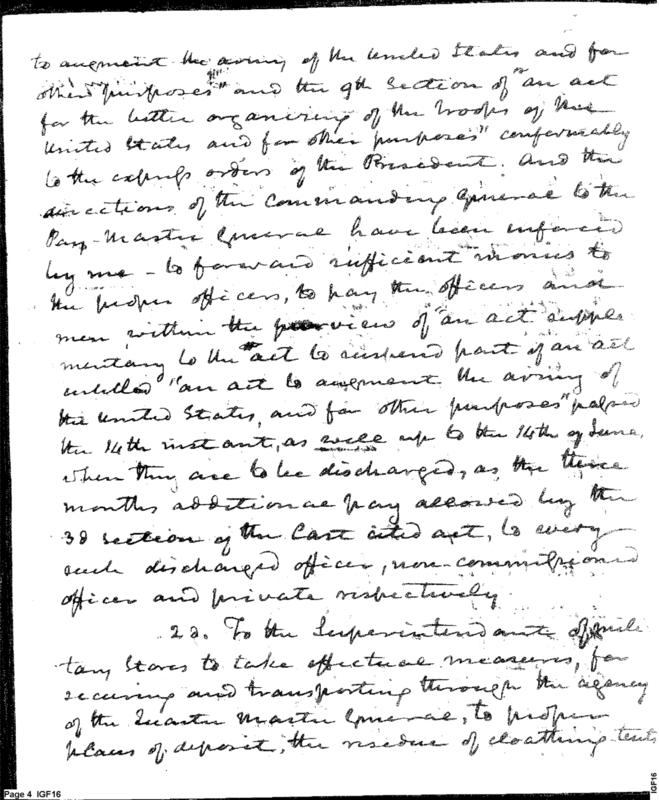 to augment the army of the United States and for
other purposes" and the 9th Section of "an act
for the better organizing of the Troops of the
United States and for other purposes" conformably
to the express orders of the President. And the
directions of the Commanding General to the
Pay-Master General have been enforced
by me - to forward sufficient monies to
the proper officers, to pay the officers and
men within the purview of "an act supple
mentary to the "act to suspend part of an act
entitled "an act to augment the army of
the United States, and for other purposes" passed
the 14th instant, as well up to the 14th of June,
when they are to be discharged, as the three
months additional pay allowed by the
3d section of the last cited act, to every
such discharged officer, non-commissioned
officer and private respectively.
2d. To the Superintendant of mili
tary Stores to take effectual measures, for
securing and transporting through the agency
of the Quarter Master General, to proper
places of deposit, the residue of cloathing tents
Page 4 IGF16
IGF16